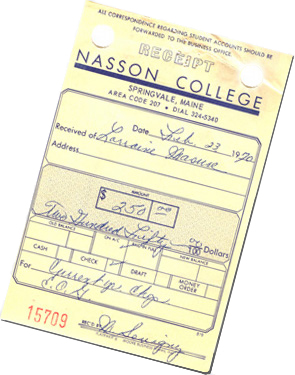 ALL CORRESPONDENCE REGARDING STUDENT ACCOUNTS SHOULD BE
FORWARDED TO THE BUSINESS OFFICE.
RECEIPT
NASSON COLLEGE
SPRINGVALE, MAINE
AREA CODE 207 • DIAL 324-5340
Date 23 1970
Received of Lorraine
Address
AMOUNT
$ 250 00
Two Hundred Fifty 00/100 Dollars
OLD BALANCE ON A/C NEW BALANCE
CASH CHECK DRAFT MONEY ORDER
For
15709 REC'D BY